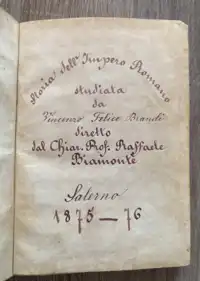 Storia dell'Impero Romano
studiata
da
Vincenzo Felice
diretto
dal Chiar. Prof. Raffaele
Biamonte
Salerno
1875–76